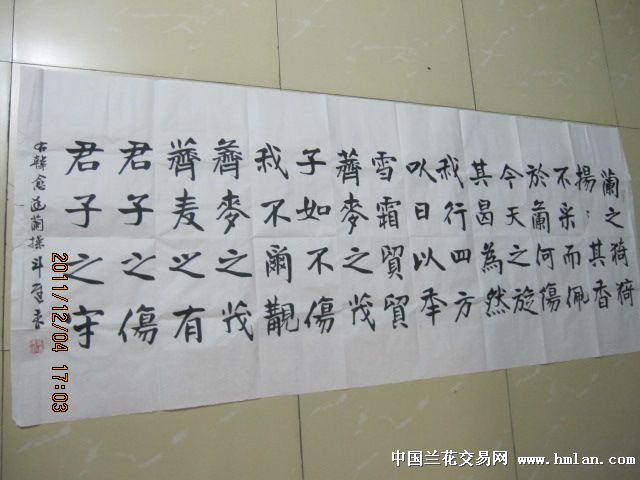 蘭之猗猗
揚：其香
不采而佩
於蘭何傷
今天之旋
其曷為然
我行四方
以日以年
雪霜貿貿
薺麥之茂
子如不傷
我不爾覯
薺麥之茂
薺麦之有
君子之傷
君子之守
右韓愈蘭操
2011/12/04 17:03
中国兰花交易网 www.hmlan.com